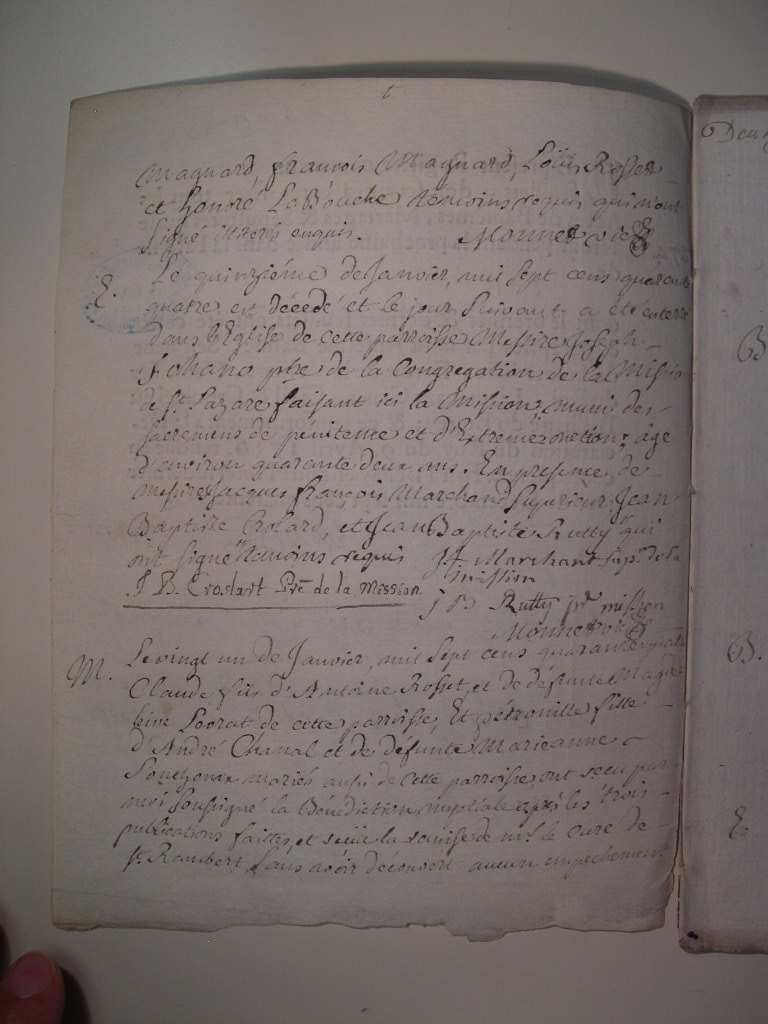 Magnard, françois Magnard, Loüis Rosset
et honoré LaBouche témoins requis qui n'ont
signé illiteré enquis. Monnet vic
E.
Le quinziéme de Janvier, mil sept cens quarente
quatre est décedé et le jour suivant a eté enterré
dans l'Eglise de cette parroisse Messire Joseph
Johano ptre de la Congregation de la Mission
de St. Lazare faisant ici la Mission, muni des
sacremens de pénitence et d'Extreme onction, âge
d'environ quarante deux ans. En presence de
Messires Jacques françois Marchand Superieur, Jean
Baptiste Crolard, et Jean Baptiste Rutty qui
ont signé témoins requis J. f. Marchant sup. de la
mission
J B. Crostart Ptre de la Mission
j B Rutty ptr mission
Monnet vic
M.
Le vingt un de Janvier, mil sept cens quarante quatre
Claude fils d'Antoine Rosset, et de défunte Mague
leine de cette parroisse, Et pétronille fille
d'André Chanal et de défunte Marieanne
mariés aussi de cette parroisse, ont reçu par
moi soussigné la Bénédiction nuptiale après les trois
publications faittes, et veüe la remise de mr. le curé de
st. Rambert sans avoir decouvert aucun empechement
B
B.
E.